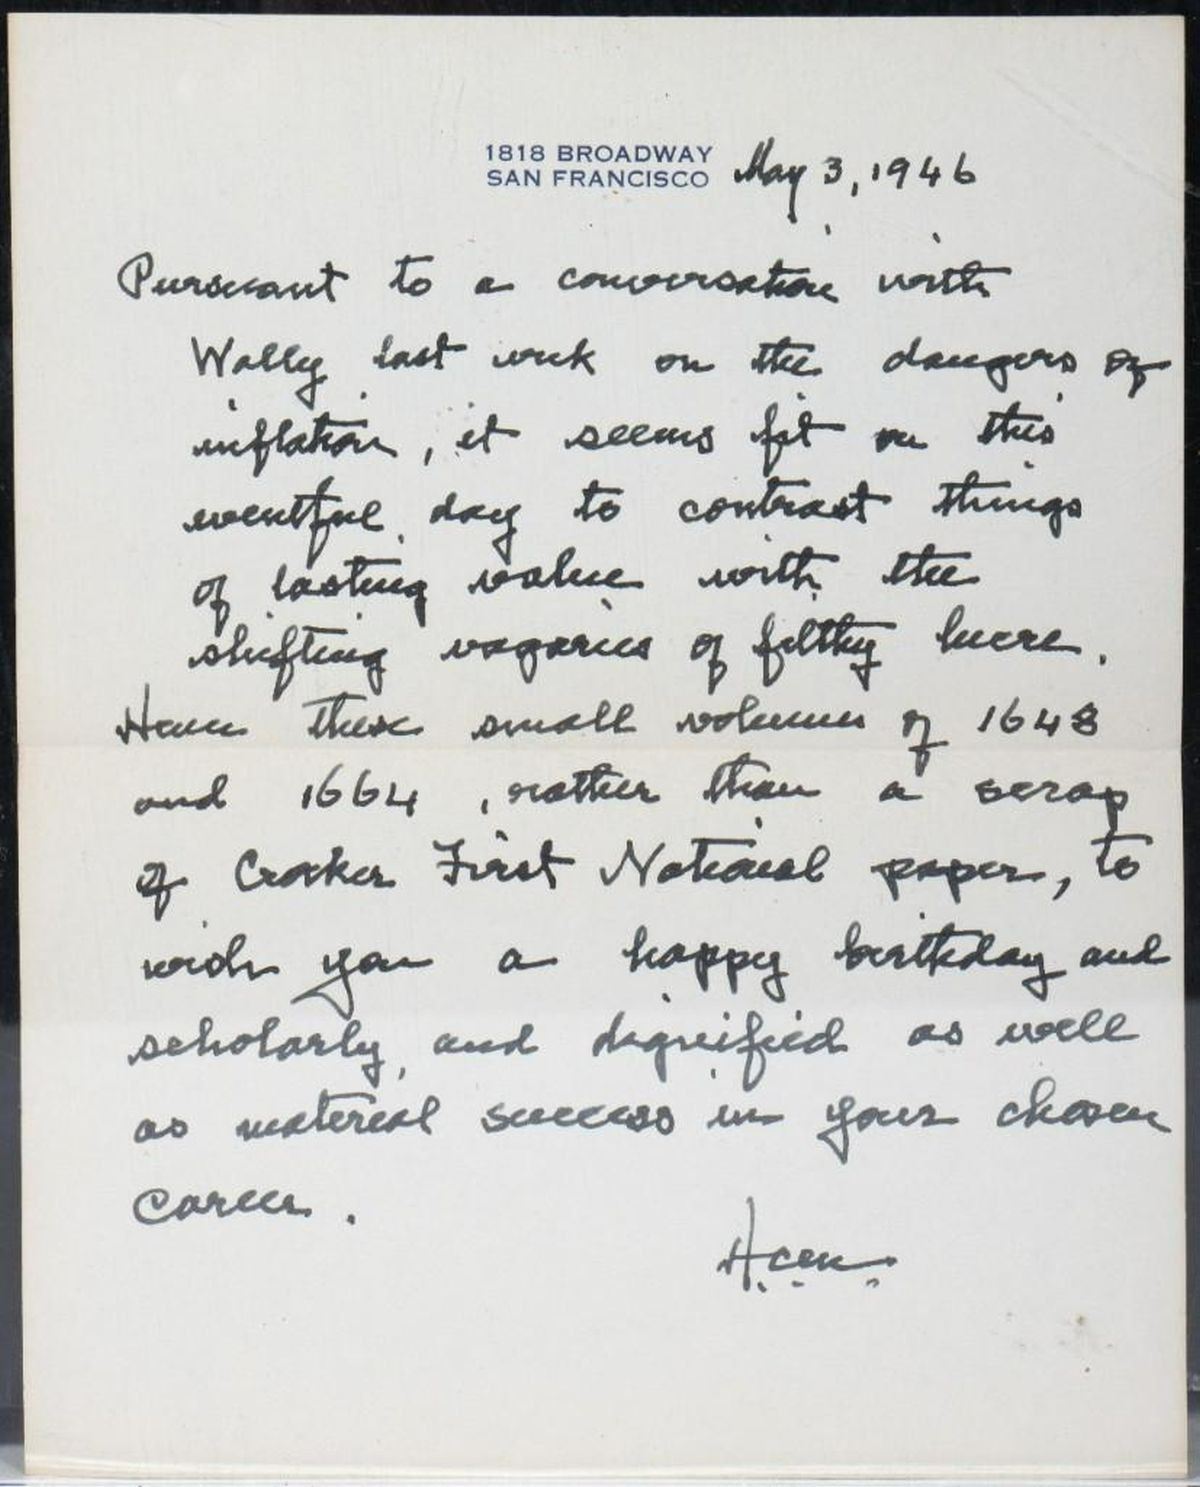 1818 BROADWAY
SAN FRANCISCO May 3, 1946
Pursuant to a conversation with
Wally last week on the dangers of
inflation, it seems fit on this
eventful day to contrast things
of lasting value with the
shifting vagaries of filthy lucre.
Hence these small volumes of 1648
and 1664, rather than a scrap
of Crocker First National paper, to
wish you a happy birthday and
scholarly and dignified as well
as material success in your chosen
career.